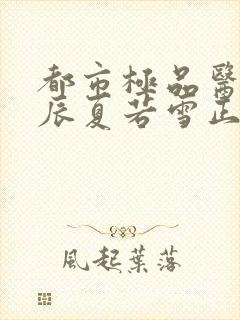 都市極品醫
辰夏若雪正
風起葉落